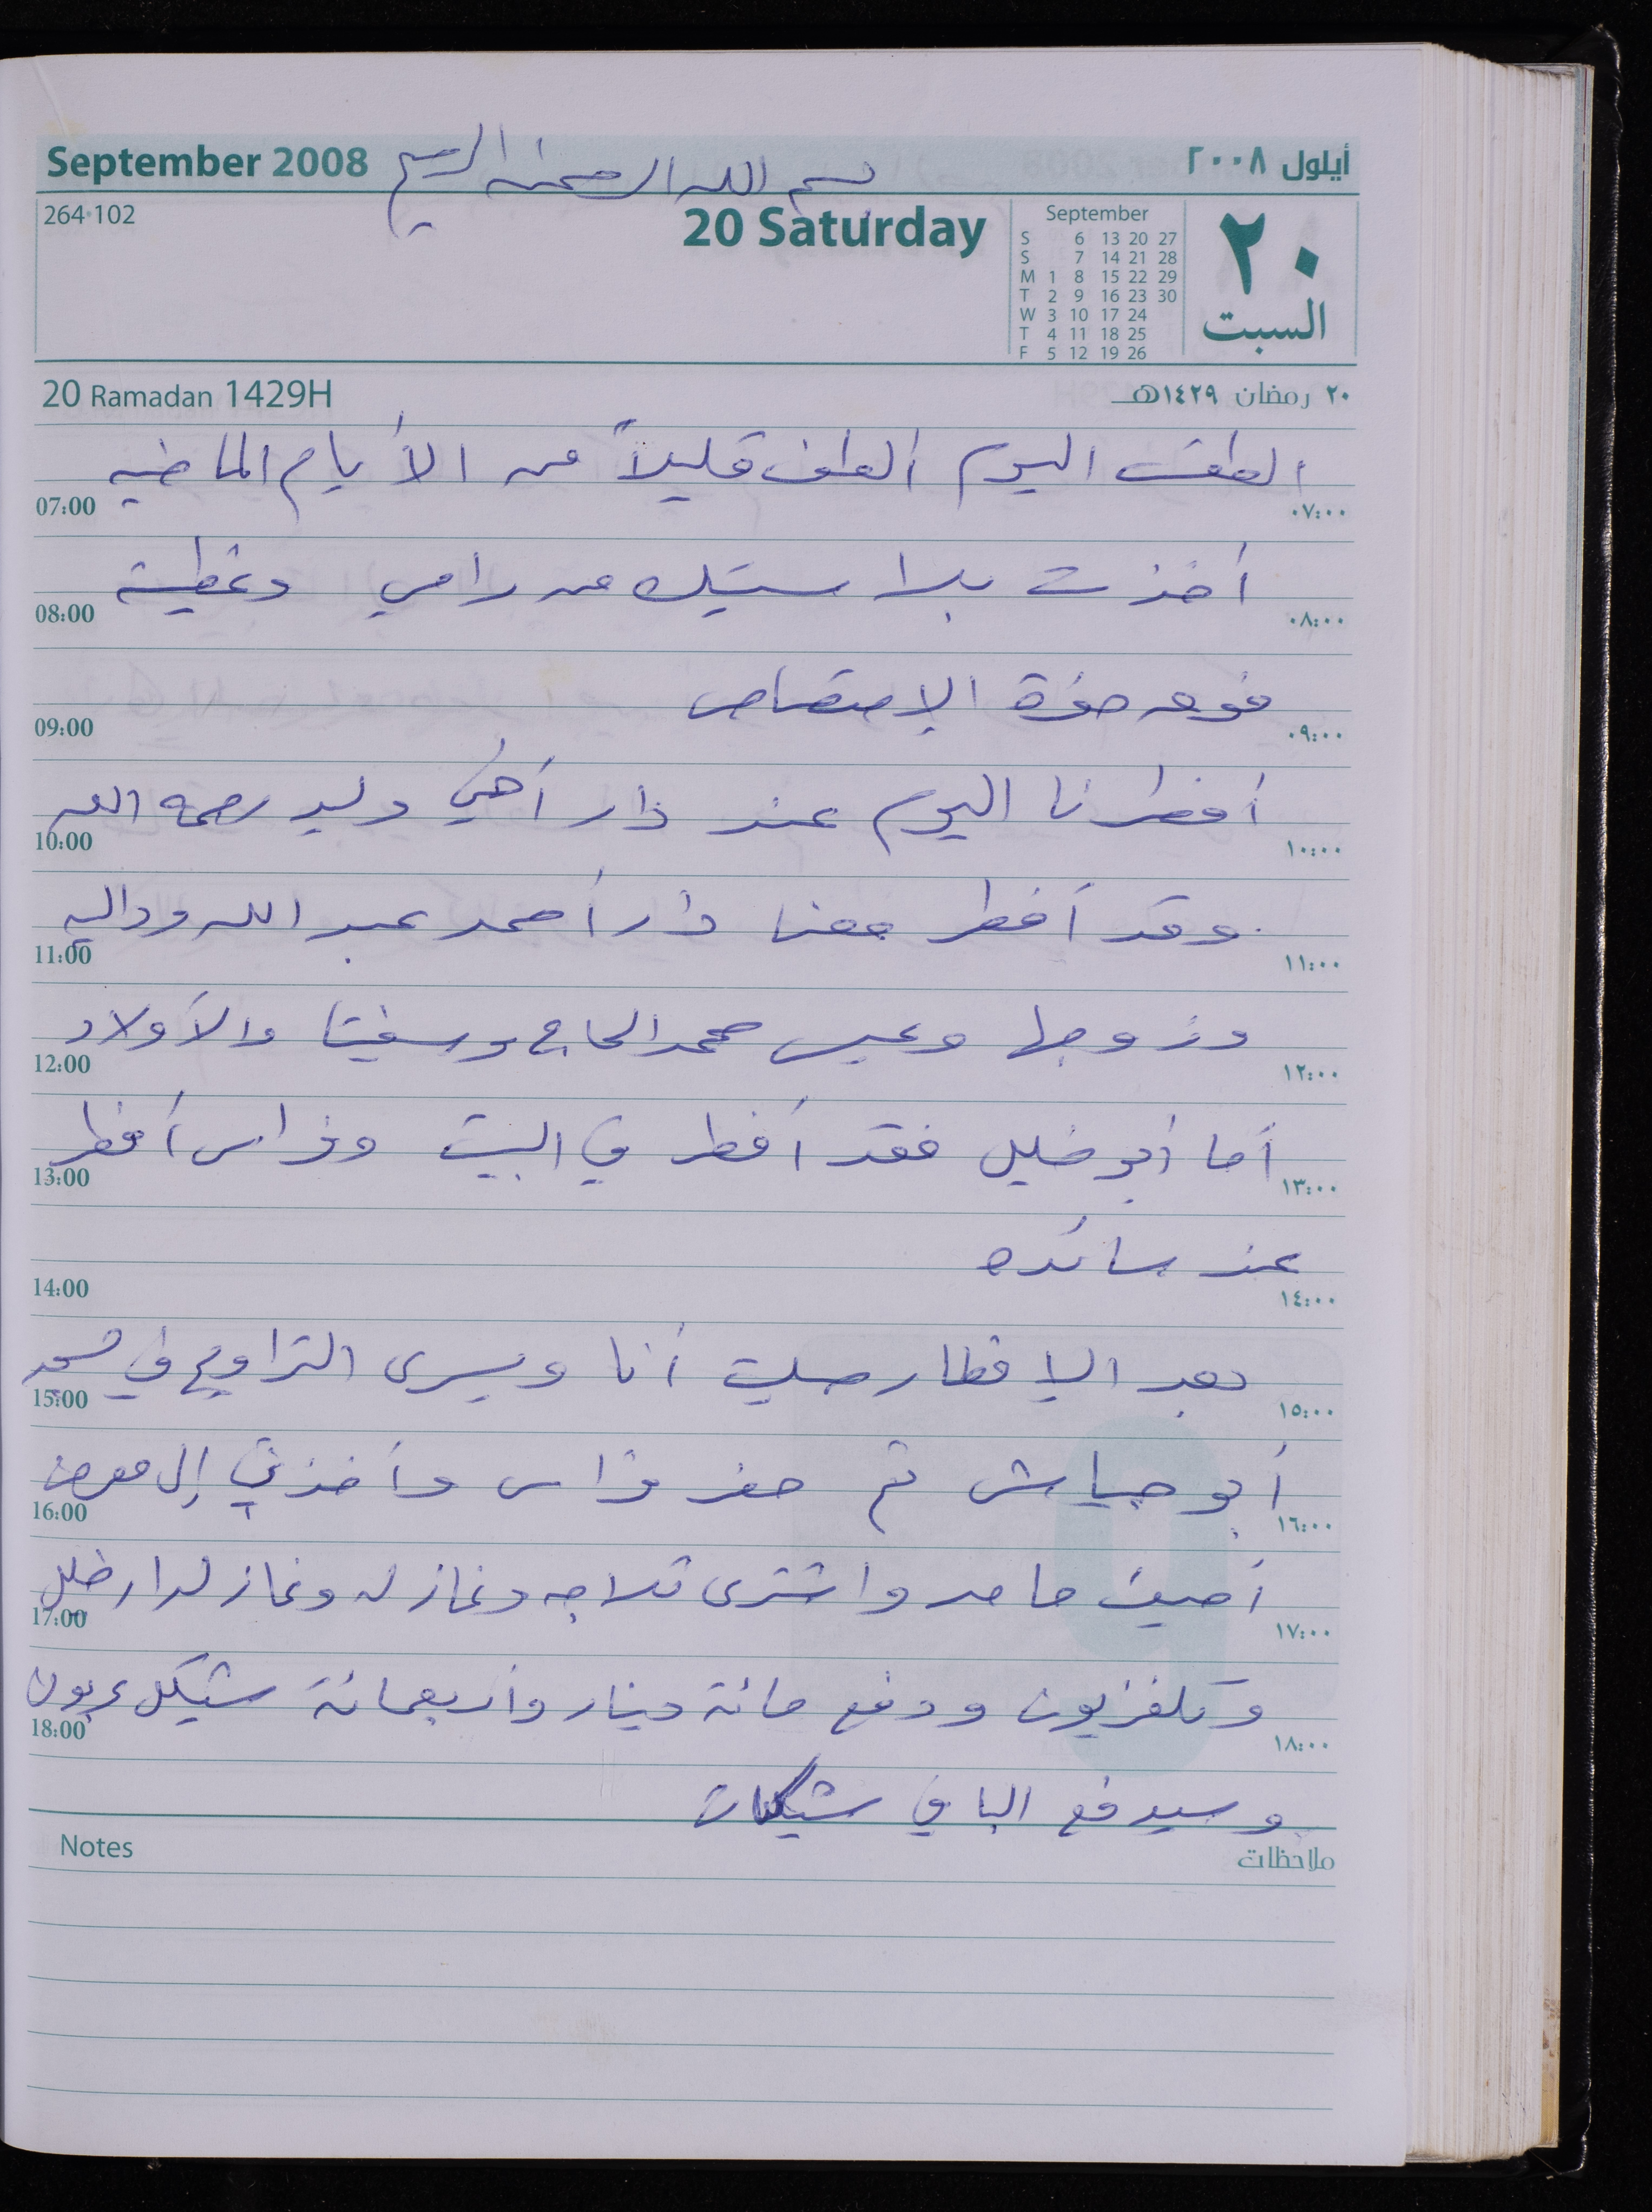 September 2008
بسم الله الرحمن الرحيم
أيلول ٢٠٠٨
264-102
20 Saturday
September
S 6 13 20 27
S 7 14 21 28
M 1 8 15 22 29
T 2 9 16 23 30
W 3 10 17 24
T 4 11 18 25
F 5 12 19 26
٢٠
السبت
20 Ramadan 1429H
٢٠ رمضان ١٤٢٩هـ
الطقس اليوم ألطف قليلاً من الأيام الماضيه
07:00 ٠٧:٠٠
أخذت بلاستيك من رامي وغطيت
08:00 ٠٨:٠٠
فوهه حفرة الإمتصاص
09:00 ٠٩:٠٠
أفطرنا اليوم عند دار أخي وليد رحمه الله
10:00 ١٠:٠٠
وقد أفطر معنا دار أحمد عبد الله وداليه
11:00 ١١:٠٠
وزوجها وعيسى محمد الحاج وسفيتا والأولاد
12:00 ١٢:٠٠
أما أبو خليل فقد أفطر في البيت وفراس أفطر
13:00 ١٣:٠٠
عند سائده
14:00 ١٤:٠٠
بعد الإفطار صليت أنا ويسرى التراويح في مسجد
15:00 ١٥:٠٠
أبو حياش ثم حضر فراس وأخذني إلى معرض
16:00 ١٦:٠٠
حامد واشترى ثلاجه وغاز له وغاز لدار خليل
17:00 ١٧:٠٠
وتلفزيون ودفع مائة دينار وأربعمائة شيكل عربون
18:00 ١٨:٠٠
وسيدفع الباقي شيكات
Notes ملاحظات